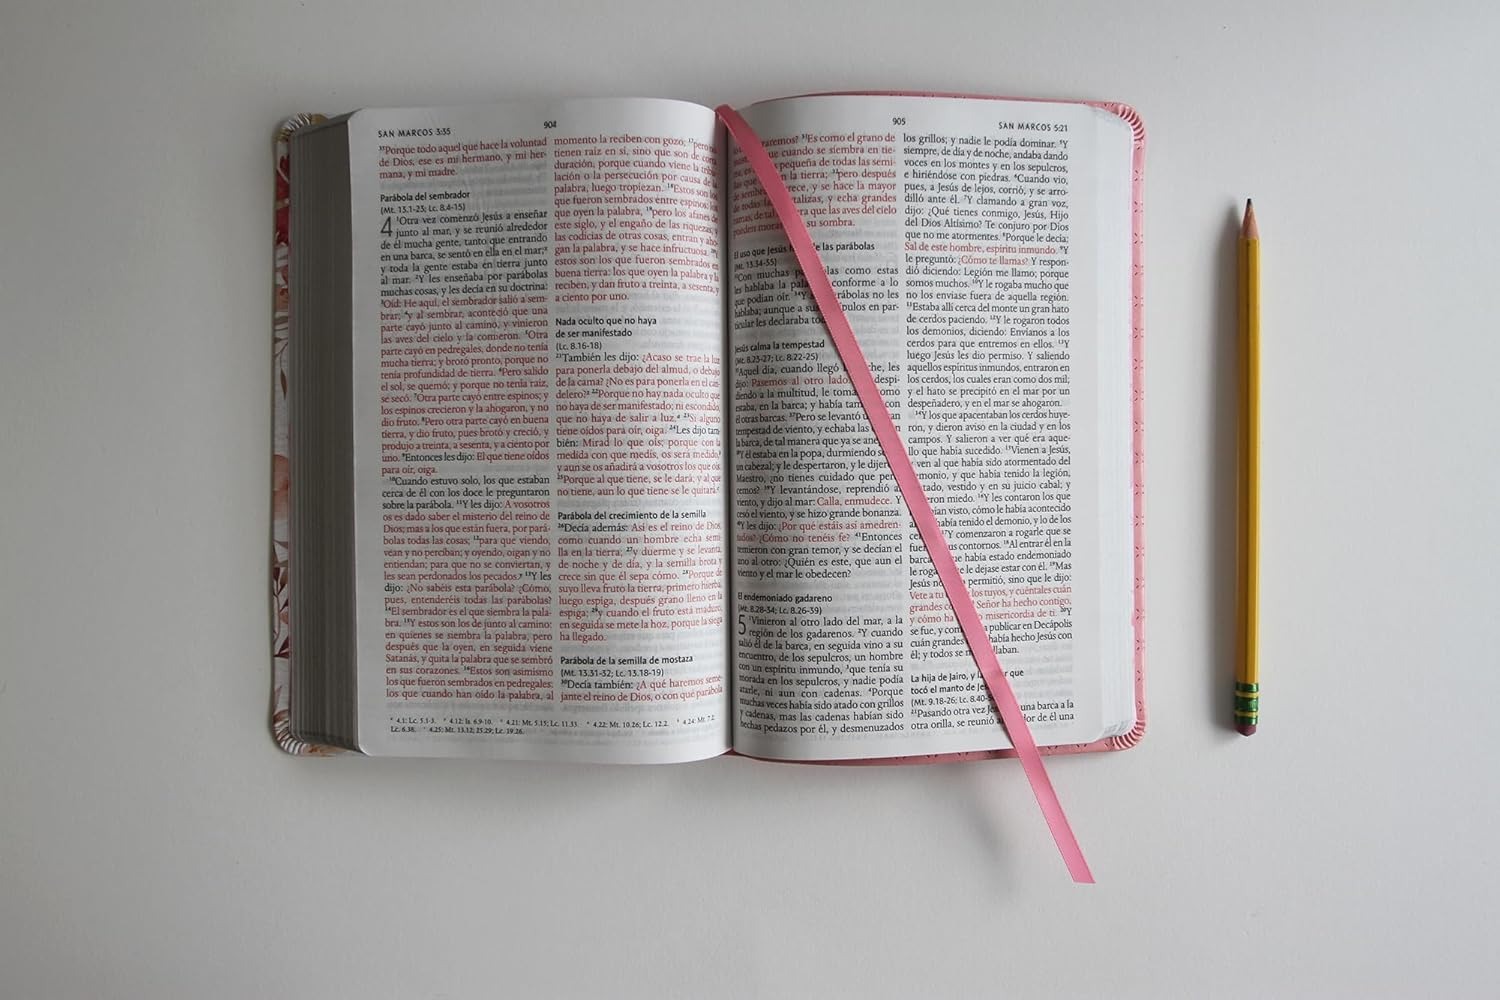 SAN MARCOS 3:35
904
³⁵Porque todo aquel que hace la voluntad
de Dios, ese es mi hermano, y mi her-
mana, y mi madre.
Parábola del sembrador
(Mt. 13.1-23; Lc. 8.4-15)
4 ¹Otra vez comenzó Jesús a enseñar
junto al mar, y se reunió alrededor
de él mucha gente, tanto que entrando
en una barca, se sentó en ella en el mar;ᵃ
y toda la gente estaba en tierra junto
al mar. ²Y les enseñaba por parábolas
muchas cosas, y les decía en su doctrina:
³Oíd: He aquí, el sembrador salió a sem-
brar; ⁴y al sembrar, aconteció que una
parte cayó junto al camino, y vinieron
las aves del cielo y la comieron. ⁵Otra
parte cayó en pedregales, donde no tenía
mucha tierra; y brotó pronto, porque no
tenía profundidad de tierra. ⁶Pero salido
el sol, se quemó; y porque no tenía raíz,
se secó. ⁷Otra parte cayó entre espinos; y
los espinos crecieron y la ahogaron, y no
dio fruto. ⁸Pero otra parte cayó en buena
tierra, y dio fruto, pues brotó y creció, y
produjo a treinta, a sesenta, y a ciento por
uno. ⁹Entonces les dijo: El que tiene oídos
para oír, oiga.
¹⁰Cuando estuvo solo, los que estaban
cerca de él con los doce le preguntaron
sobre la parábola. ¹¹Y les dijo: A vosotros
os es dado saber el misterio del reino de
Dios; mas a los que están fuera, por pará-
bolas todas las cosas; ¹²para que viendo,
vean y no perciban; y oyendo, oigan y no
entiendan; para que no se conviertan, y
les sean perdonados los pecados. ¹³Y les
dijo: ¿No sabéis esta parábola? ¿Cómo,
pues, entenderéis todas las parábolas?
¹⁴El sembrador es el que siembra la pala-
bra. ¹⁵Y estos son los de junto al camino:
en quienes se siembra la palabra, pero
después que la oyen, en seguida viene
Satanás, y quita la palabra que se sembró
en sus corazones. ¹⁶Estos son asimismo
los que fueron sembrados en pedregales:
los que cuando han oído la palabra, al
momento la reciben con gozo; ¹⁷pero no
tienen raíz en sí, sino que son de corta
duración, porque cuando viene la tribu-
lación o la persecución por causa de la
palabra, luego tropiezan. ¹⁸Estos son los
que fueron sembrados entre espinos: los
que oyen la palabra, ¹⁹pero los afanes de
este siglo, y el engaño de las riquezas, y
las codicias de otras cosas, entran y aho-
gan la palabra, y se hace infructuosa. ²⁰Y
estos son los que fueron sembrados en
buena tierra: los que oyen la palabra y la
reciben, y dan fruto a treinta, a sesenta, y
a ciento por uno.
Nada oculto que no haya
de ser manifestado
(Lc. 8.16-18)
²¹También les dijo: ¿Acaso se trae la luz
para ponerla debajo del almud, o debajo
de la cama? ¿No es para ponerla en el can-
delero? ²²Porque no hay nada oculto que
no haya de ser manifestado; ni escondido,
que no haya de salir a luz. ²³Si alguno
tiene oídos para oír, oiga. ²⁴Les dijo tam-
bién: Mirad lo que oís; porque con la
medida con que medís, os será medido,
y aun se os añadirá a vosotros los que oís.
²⁵Porque al que tiene, se le dará; y al que
no tiene, aun lo que tiene se le quitará.
Parábola del crecimiento de la semilla
²⁶Decía además: Así es el reino de Dios,
como cuando un hombre echa semi-
lla en la tierra; ²⁷y duerme y se levanta,
de noche y de día, y la semilla brota y
crece sin que él sepa cómo. ²⁸Porque de
suyo lleva fruto la tierra, primero hierba,
luego espiga, después grano lleno en la
espiga; ²⁹y cuando el fruto está maduro,
en seguida se mete la hoz, porque la siega
ha llegado.
Parábola de la semilla de mostaza
(Mt. 13.31-32; Lc. 13.18-19)
³⁰Decía también: ¿A qué haremos seme-
jante el reino de Dios, o con qué parábola
4.1: Lc. 5.1-3. 4.12: Is. 6.9-10. 4.21: Mt. 5.15; Lc. 11.33. 4.22: Mt. 10.26; Lc. 12.2. 4.24: Mt. 7.2;
Lc. 6.38. 4.25: Mt. 13.12; 25.29; Lc. 19.26.
905
SAN MARCOS 5:21
³¹Es como el grano de
que cuando se siembra en tie-
pequeña de todas las semi-
en la tierra; ³²pero después
crece, y se hace la mayor
de todas y echa grandes
ramas, de tal que las aves del cielo
pueden su sombra.
El uso que Jesús de las parábolas
(Mt. 13.34-55)
³³Con muchas como estas
les hablaba la conforme a lo
que podían oír. ³⁴Y parábolas no les
hablaba; aunque a sus en par-
ticular les declaraba
Jesús calma la tempestad
(Mt. 8.23-27; Lc. 8.22-25)
³⁵Aquel día, cuando llegó noche, les
dijo: Pasemos al otro lado. despi-
diendo a la multitud, le como
estaba, en la barca; y había con
él otras barcas. ³⁷Pero se levantó
tempestad de viento, y echaba las en
la barca, de tal manera que ya se
³⁸Y él estaba en la popa, durmiendo
un cabezal; y le despertaron, y le
Maestro, ¿no tienes cuidado que
³⁹Y levantándose, reprendió al
viento, y dijo al mar: Calla, enmudece. Y
cesó el viento, y se hizo grande bonanza.
⁴⁰Y les dijo: ¿Por qué estáis así amedren-
tados? ¿Cómo no tenéis fe? ⁴¹Entonces
temieron con gran temor, y se decían el
uno al otro: ¿Quién es este, que aun el
viento y el mar le obedecen?
El endemoniado gadareno
(Mt. 8.28-34; Lc. 8.26-39)
5 ¹Vinieron al otro lado del mar, a la
región de los gadarenos. ²Y cuando
salió él de la barca, en seguida vino a su
encuentro, de los sepulcros, un hombre
con un espíritu inmundo, ³que tenía su
morada en los sepulcros, y nadie podía
atarle, ni aun con cadenas. ⁴Porque
muchas veces había sido atado con grillos
y cadenas, mas las cadenas habían sido
hechas pedazos por él, y desmenuzados
los grillos; y nadie le podía dominar. ⁵Y
siempre, de día y de noche, andaba dando
voces en los montes y en los sepulcros,
e hiriéndose con piedras. ⁶Cuando vio,
pues, a Jesús de lejos, corrió, y se arro-
dilló ante él. ⁷Y clamando a gran voz,
dijo: ¿Qué tienes conmigo, Jesús, Hijo
del Dios Altísimo? Te conjuro por Dios
que no me atormentes. ⁸Porque le decía:
Sal de este hombre, espíritu inmundo. ⁹Y
le preguntó: ¿Cómo te llamas? Y respon-
dió diciendo: Legión me llamo; porque
somos muchos. ¹⁰Y le rogaba mucho que
no los enviase fuera de aquella región.
¹¹Estaba allí cerca del monte un gran hato
de cerdos paciendo. ¹²Y le rogaron todos
los demonios, diciendo: Envíanos a los
cerdos para que entremos en ellos. ¹³Y
luego Jesús les dio permiso. Y saliendo
aquellos espíritus inmundos, entraron en
los cerdos, los cuales eran como dos mil;
y el hato se precipitó en el mar por un
despeñadero, y en el mar se ahogaron.
¹⁴Y los que apacentaban los cerdos huye-
ron, y dieron aviso en la ciudad y en los
campos. Y salieron a ver qué era aque-
llo que había sucedido. ¹⁵Vienen a Jesús,
y ven al que había sido atormentado del
demonio, y que había tenido la legión,
vestido y en su juicio cabal; y
miedo. ¹⁶Y les contaron los que
visto, cómo le había acontecido
había tenido el demonio, y lo de los
¹⁷Y comenzaron a rogarle que
fuera sus contornos. ¹⁸Al entrar él en la
que había estado endemoniado
le que le dejase estar con él. ¹⁹Mas
Jesús permitió, sino que le dijo:
Vete a tu los tuyos, y cuéntales cuán
grandes Señor ha hecho contigo,
y cómo ha misericordia de ti. ²⁰Y
se fue, y publicar en Decápolis
cuán grandes había hecho Jesús con
él; y todos se
La hija de Jairo, y que
tocó el manto de
(Mt. 9.18-26; Lc. 8.40-
²¹Pasando otra vez una barca a la
otra orilla, se reunió de él una